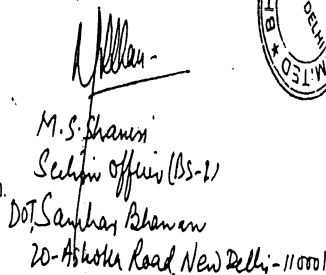 DELHI
★ BH
MITED ★
M.S. Shamsi
Section Officer (BS-I)
DOT, Sanchar Bhawan
20-Ashoka Road New Delhi-110001